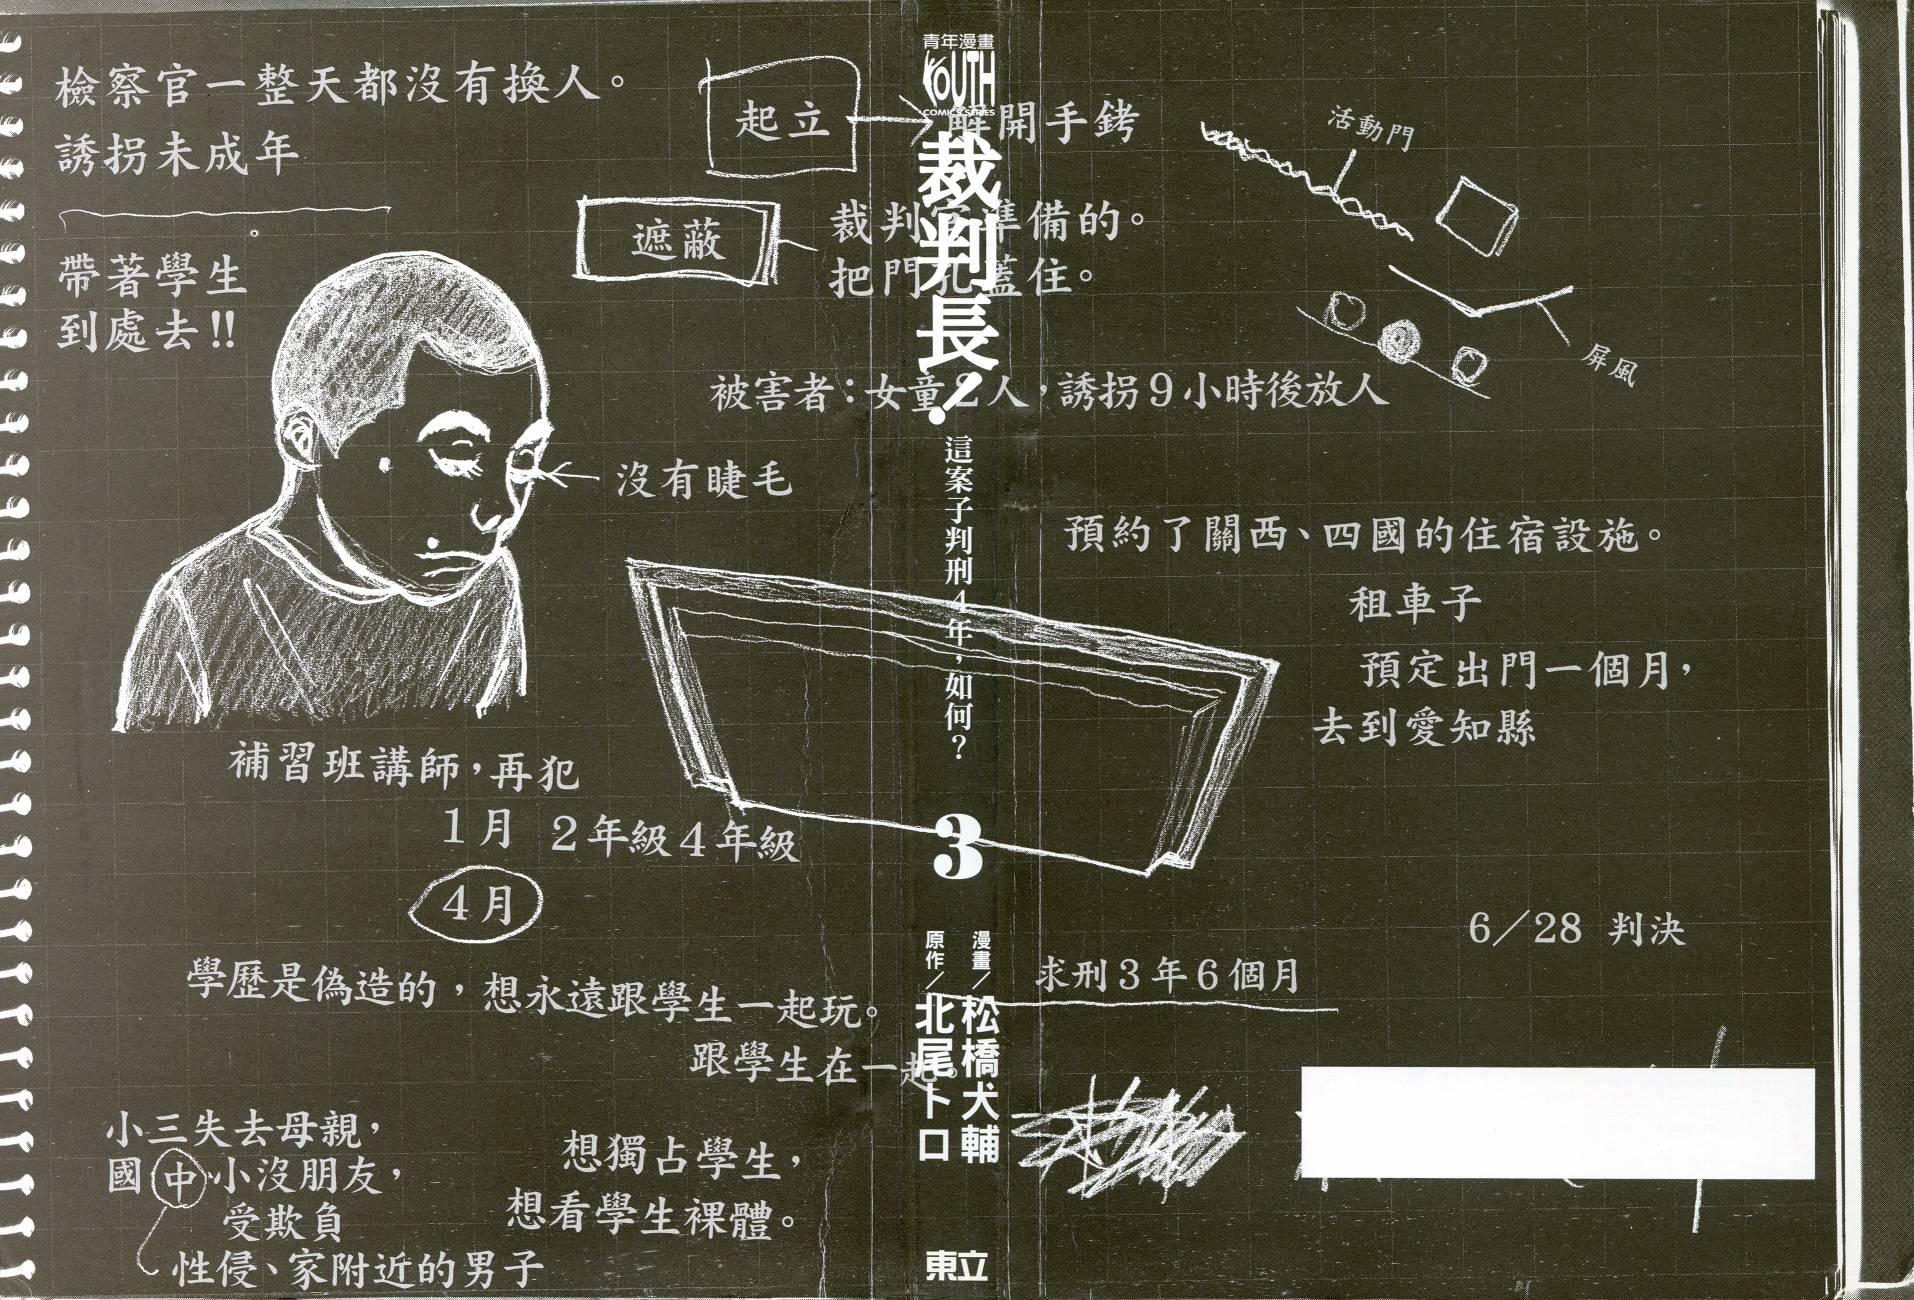 檢察官一整天都沒有換人。
誘拐未成年
帶著學生
到處去!!
起立
解開手銬
遮蔽
裁判官準備的。
把門孔蓋住。
活動門
屏風
被害者：女童2人，誘拐9小時後放人
沒有睫毛
預約了關西、四國的住宿設施。
租車子
預定出門一個月，
去到愛知縣
補習班講師，再犯
1月 2年級4年級
4月
6／28 判決
求刑3年6個月
學歷是偽造的，想永遠跟學生一起玩。
跟學生在一起。
小三失去母親，
國中小沒朋友，
受欺負
性侵、家附近的男子
想獨占學生，
想看學生裸體。
青年漫畫
YOUTH
COMICS SERIES
裁判長！
這案子判刑4年，如何？
3
漫畫／松橋犬輔
原作／北尾トロ
東立